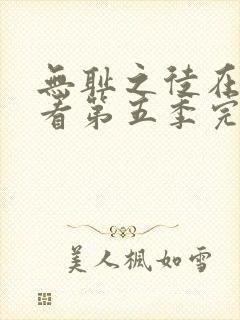 無耻之徒在
看第五季完
美人楓如雪